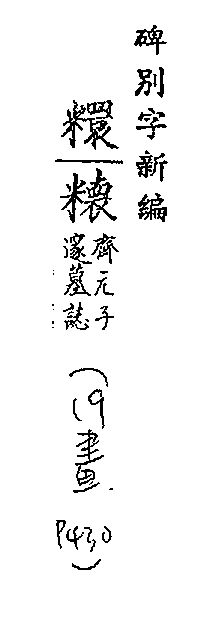 碑別字新編
糫
齊元子
邃墓誌
(19
畫.
P430)